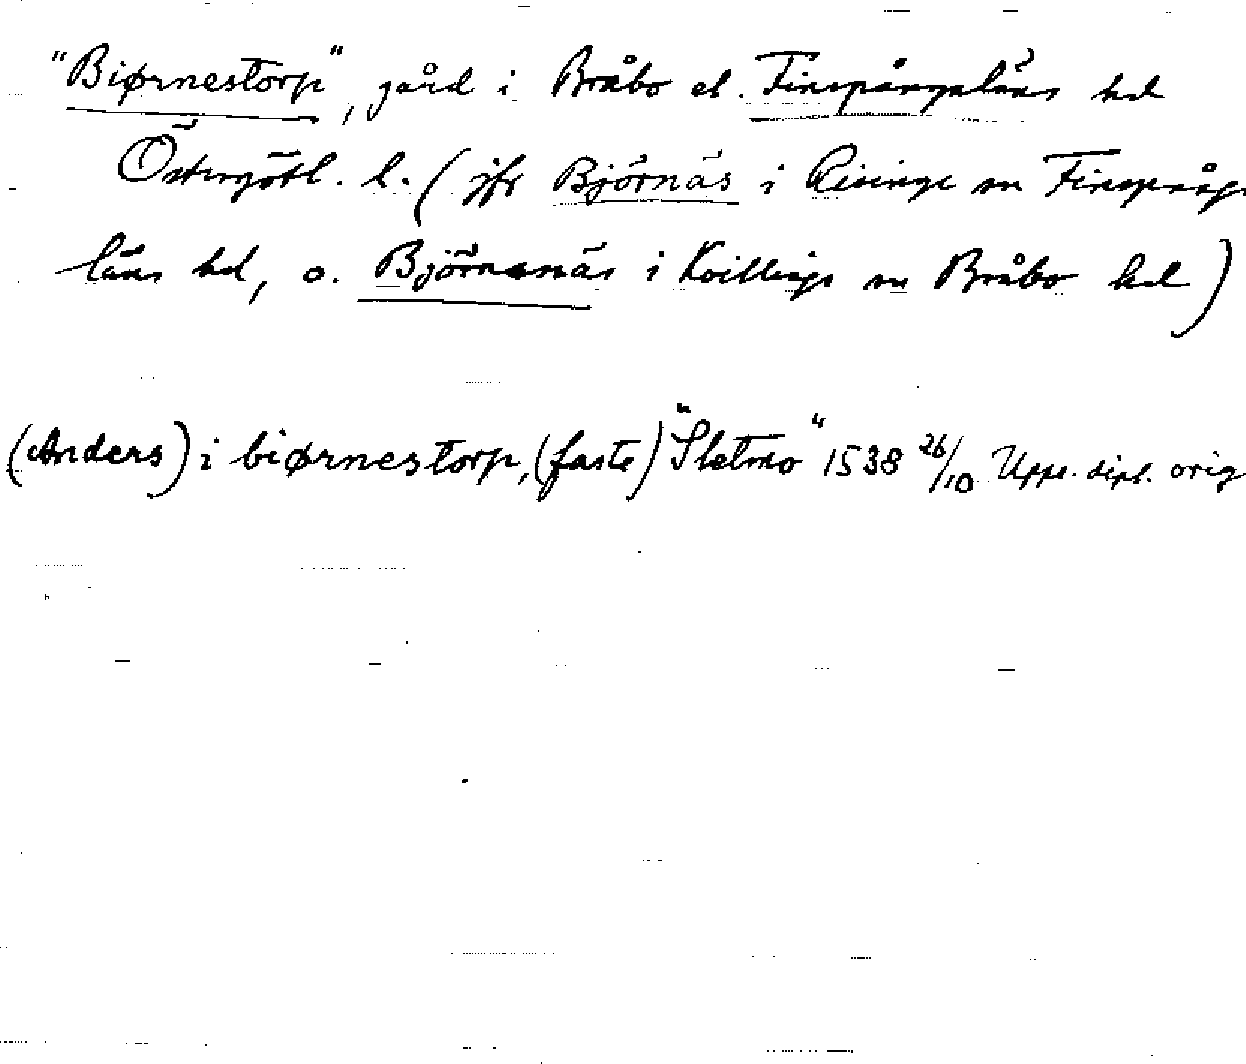 "Biørnestorp", gård i Bråbo el. Finspångaläns hd
Östergötl. l. (jfr Björnäs i Risinge sn Finspång
läns hd, o. Björnsnäs i Kvillinge sn Bråbo hd)
(Anders) i biørnestorp, (faste) "Sletmo" 1538 26/10 Upps. dipl. orig